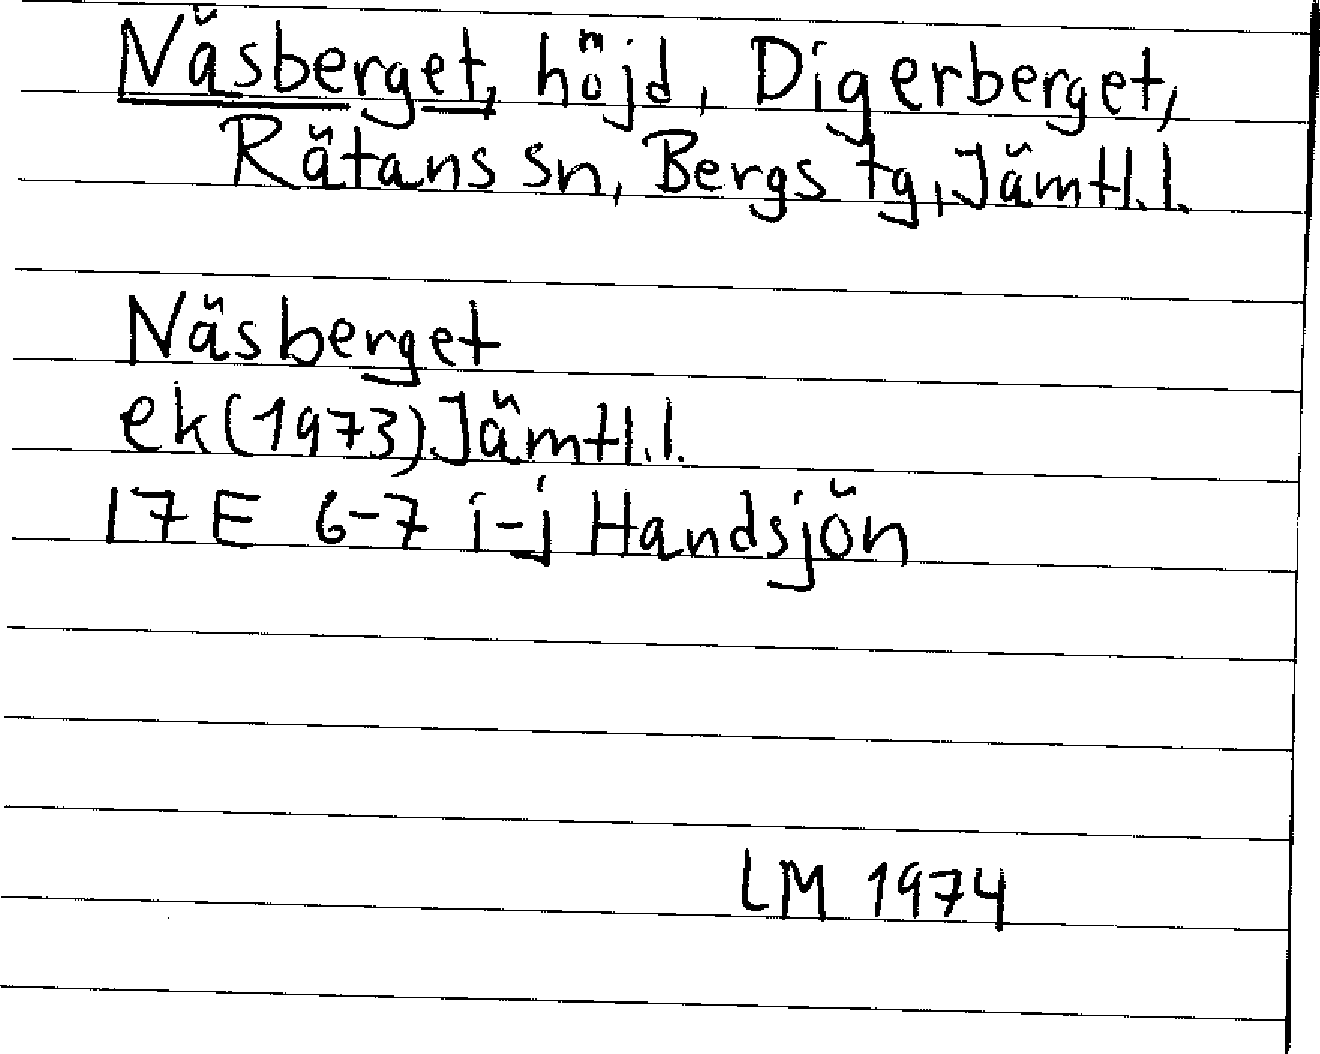 Näsberget, höjd, Digerberget,
Rätans sn, Bergs tg, Jämtl.l.
Näsberget
ek(1973) Jämtl.l.
17E 6-7 i-j Handsjön
LM 1974